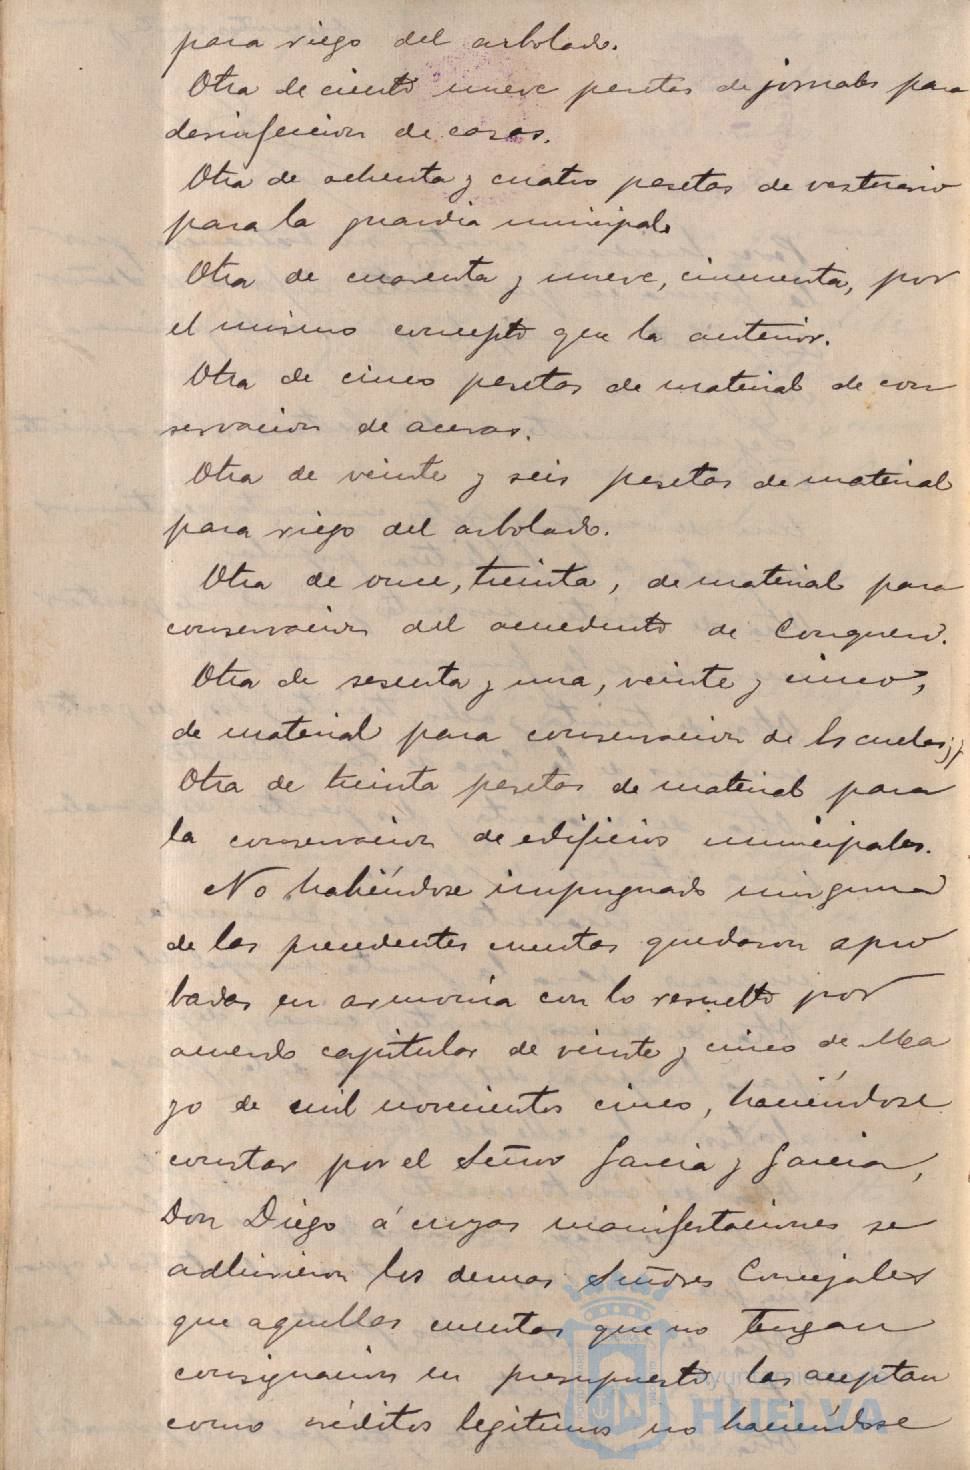 para riego del arbolado.
Otra de ciento nueve pesetas de jornales para
desinfeccion de casas.
Otra de ochenta y cuatro pesetas de vestuario
para la guardia municipal.
Otra de cuarenta y nueve, cincuenta, por
el mismo concepto que la anterior.
Otra de cinco pesetas de material de con
servacion de aceras.
Otra de veinte y seis pesetas de material
para riego del arbolado.
Otra de once, treinta, de material para
conservacion del acueducto de Conquero.
Otra de sesenta y una, veinte y cinco,
de material para conservacion de Escuelas; y
Otra de treinta pesetas de material para
la conservacion de edificios municipales.
No habiéndose impugnado ninguna
de las precedentes cuentas quedaron apro
badas en armonia con lo resuelto por
acuerdo capitular de veinte y cinco de Ma
yo de mil novecientos cinco, haciéndose
constar por el Señor Garcia y Garcia,
Don Diego á cuyas manifestaciones se
adhirieron los demas Señores Concejales
que aquellas cuentas que no tengan
consignacion en presupuesto las aceptan
como créditos legitimos no haciéndose
Ayuntamiento de
HUELVA